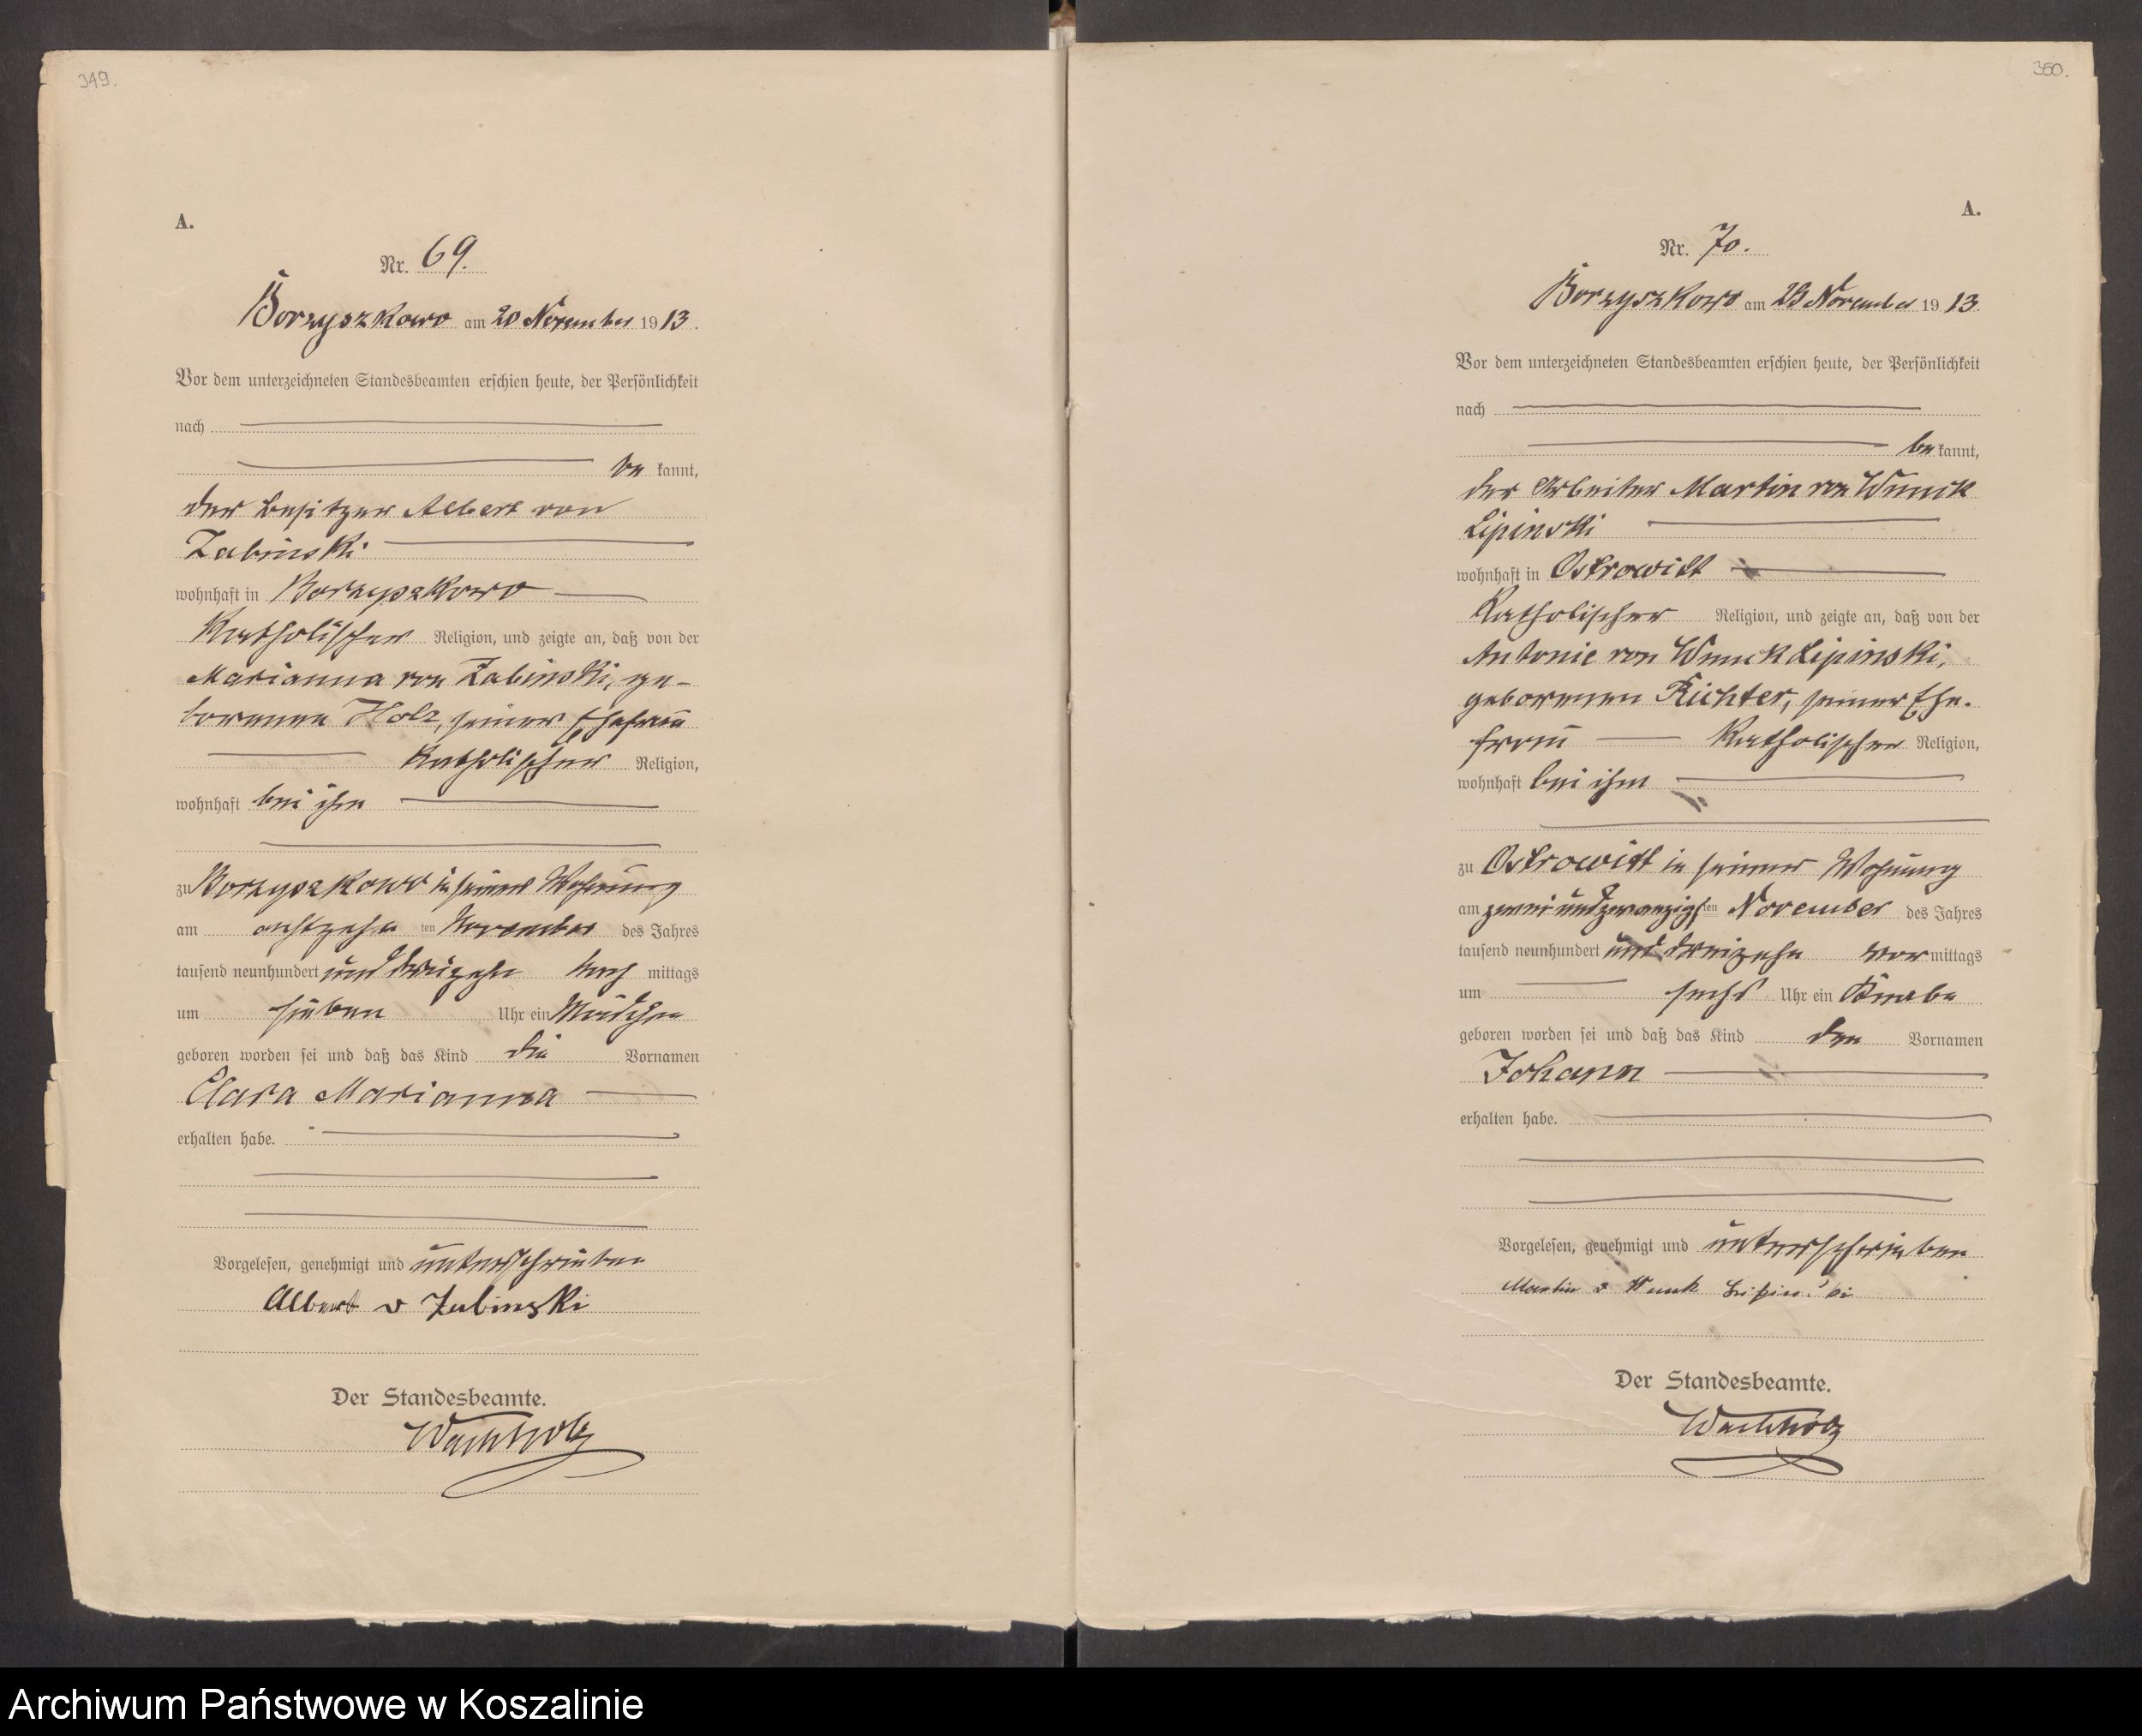 349.
A.
Nr. 69.
Borzyszkowo am 20 November 1913.
Vor dem unterzeichneten Standesbeamten erschien heute, der Persönlichkeit
nach
be kannt,
der Besitzer Albert von
Zabinski
wohnhaft in Borzyszkowo
Katholischer Religion, und zeigte an, daß von der
Marianna von Zabinski, ge-
borenen Holz, seiner Ehefrau
Katholischer Religion,
wohnhaft bei ihm
zu Borzyszkowo in seiner Wohnung
am achtzehn ten November des Jahres
tausend neunhundert und dreizehn Nach mittags
um sieben Uhr ein Mädchen
geboren worden sei und daß das Kind die Vornamen
Clara Marianna
erhalten habe.
Vorgelesen, genehmigt und unterschrieben
Albert v Zabinski
Der Standesbeamte.
Wachholz
350.
A.
Nr. 70.
Borzyszkowo am 23 November 1913.
Vor dem unterzeichneten Standesbeamten erschien heute, der Persönlichkeit
nach
be kannt,
der Arbeiter Martin von Wnuck
Lipinski
wohnhaft in Ostrowitt
Katholischer Religion, und zeigte an, daß von der
Antonie von Wnuck Lipinski,
geborenen Richter, seiner Ehe-
frau Katholischer Religion,
wohnhaft bei ihm
zu Ostrowitt in seiner Wohnung
am zwei und zwanzigsten November des Jahres
tausend neunhundert und dreizehn vor mittags
um sechs Uhr ein Knabe
geboren worden sei und daß das Kind den Vornamen
Johann
erhalten habe.
Vorgelesen, genehmigt und unterschrieben
Martin v Wnuk Lipinski
Der Standesbeamte.
Wachholz
Archiwum Państwowe w Koszalinie